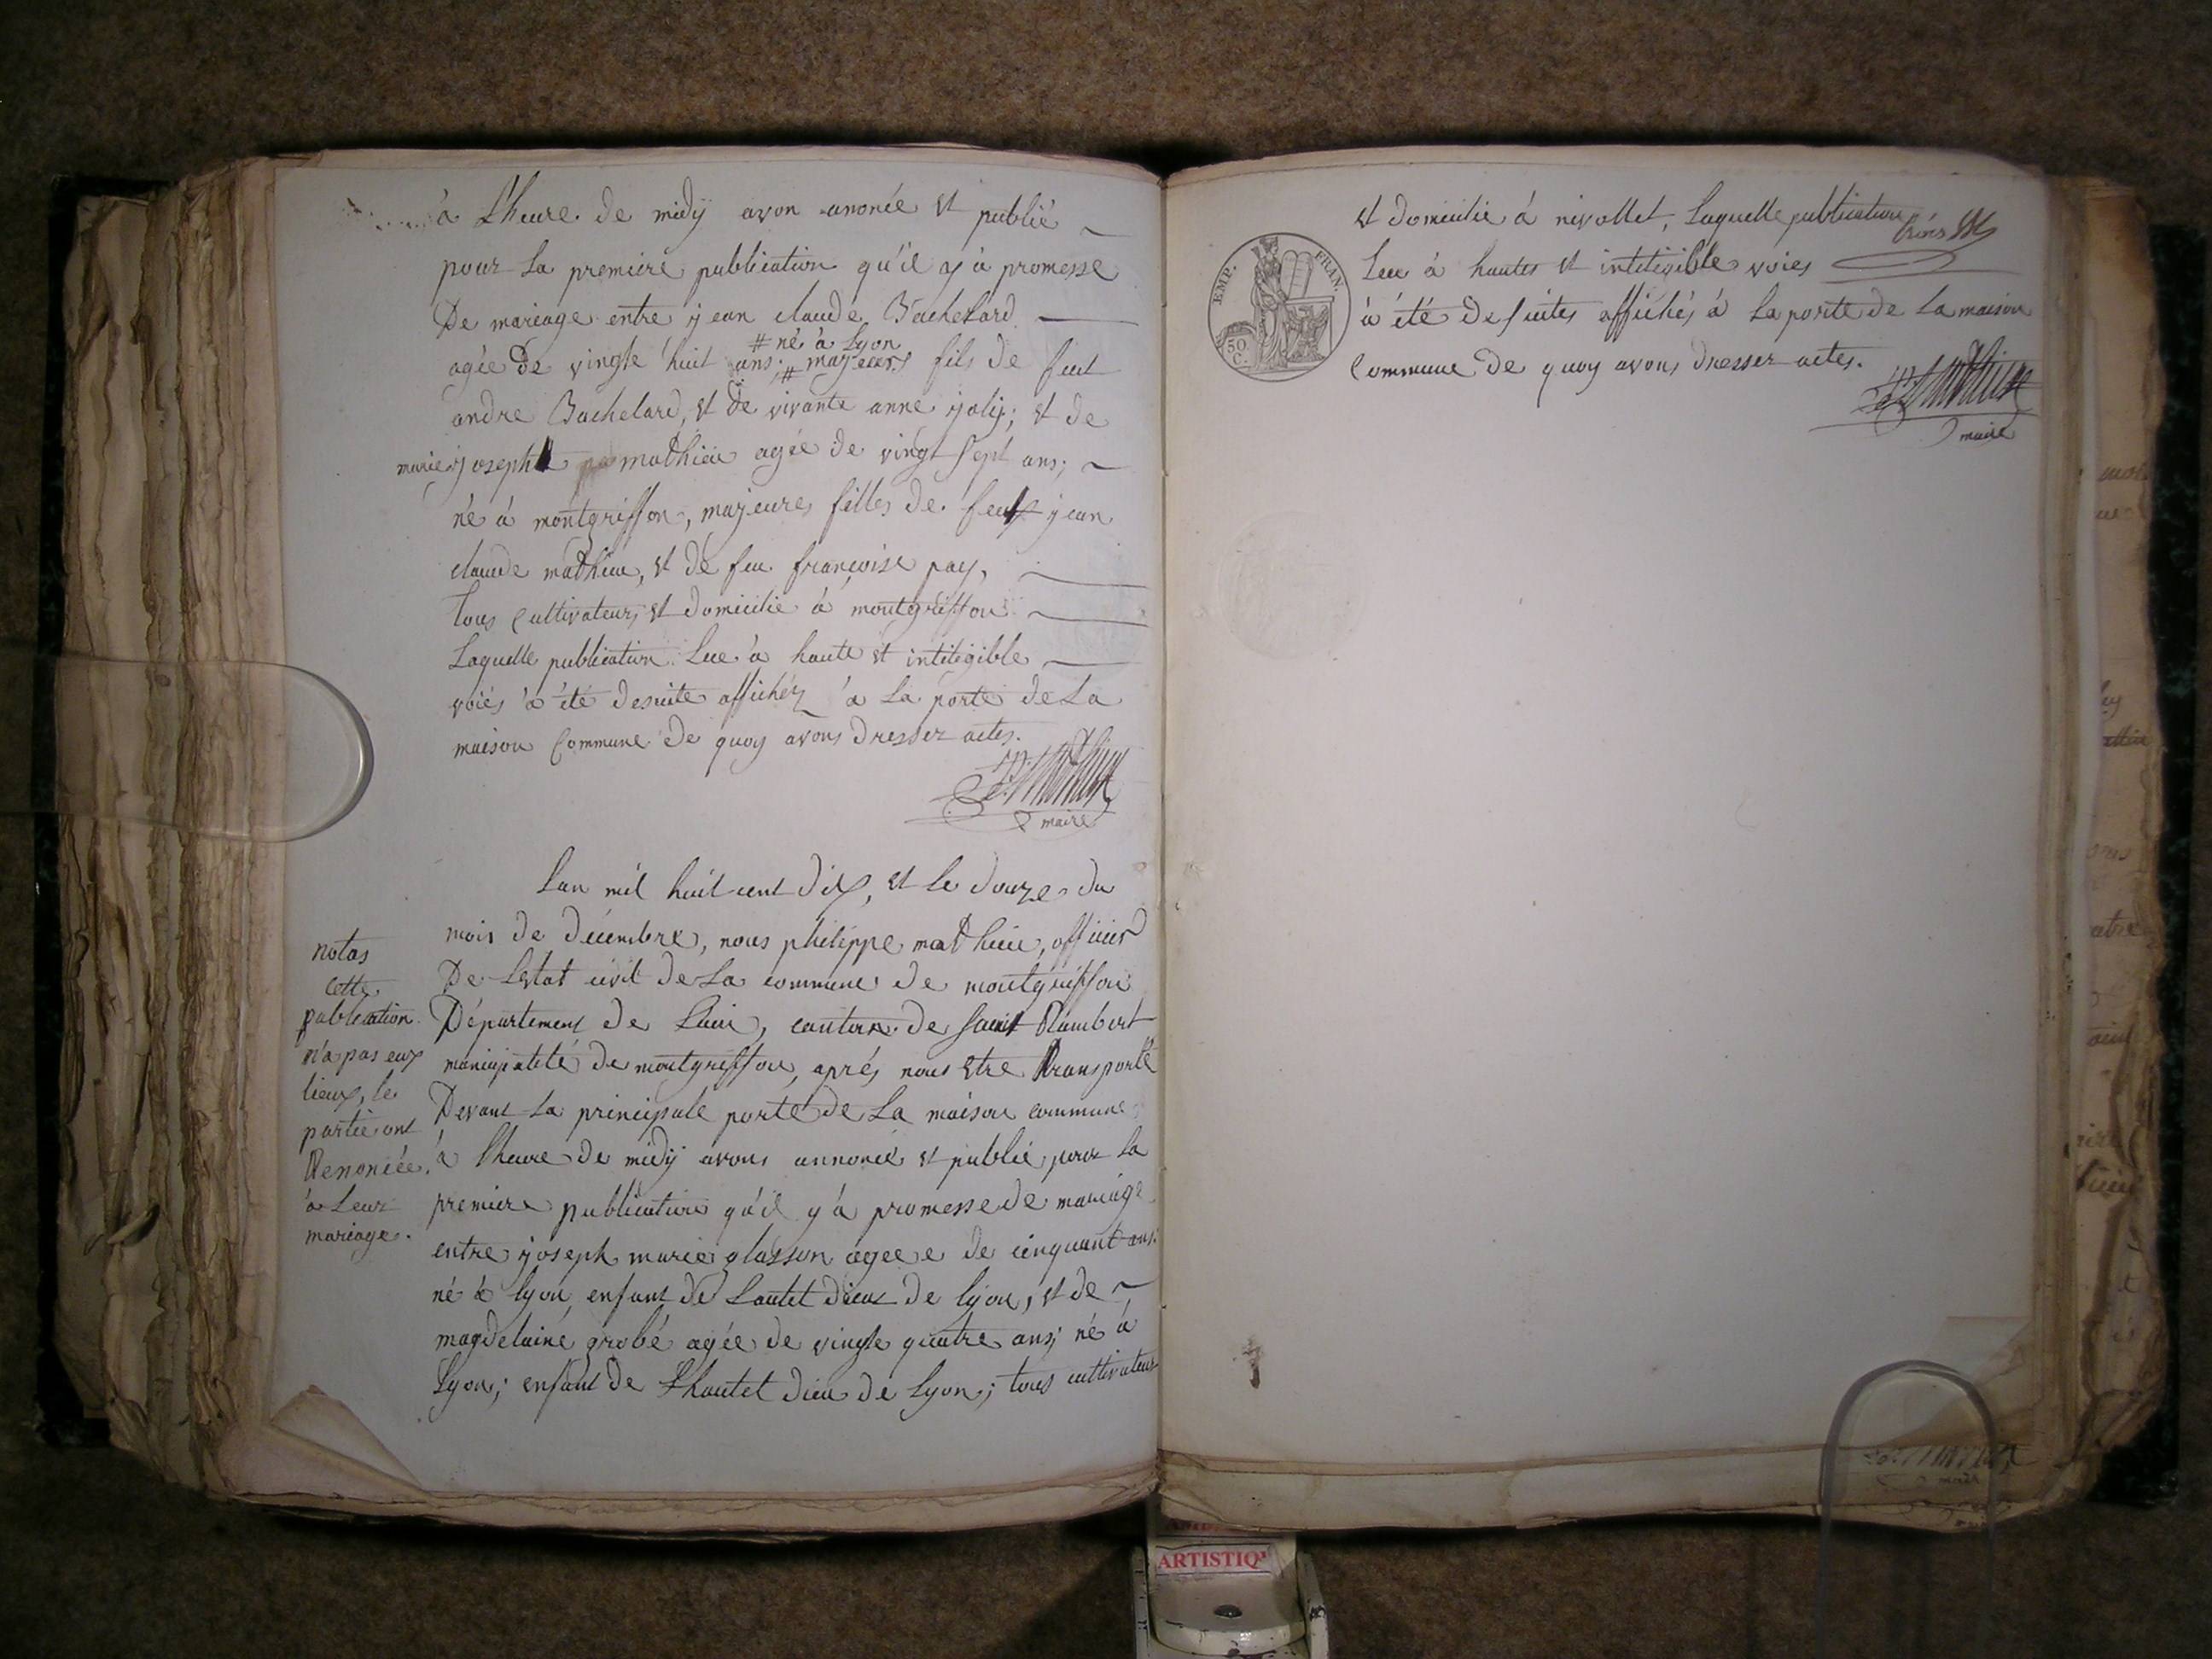 à L'heure de midÿ avon anoncé et publié
pour La premiere publication qu'il aj à promesse
De mariage entre jean claude Bachelard
# né à Lyon
agée De vingte huit ans; # majeurs fils de feut
andre Bachelard, et de vivante anne joly; et de
marie joseph mathieu agée de vingt sept ans;
né à montgriffon, majeures filles de feu jean
claude mathieu, et de feu françoise pay,
tous Cultivateurs et domicilie à montgriffon
Laquelle publication Lue à haute et inteligible
voiés à été desuite affichéz à La porte de La
maison Commune de quoy avons dresser actes.
mathieu
maire
Lan mil huit cent dix, et le douze du
mois de décembre, nous philippe mathieu, officier
De Lestat civil de La commune de montgriffon
Département de Lain, canton de saint Rambert
municipalité de montgriffon, aprés nous etre transporté
Devant La principale porte de La maison commune
à Lheure de midÿ avons annoncé et publié pour La
premiere publication qu'il y à promesse de mariage
entre joseph marie glasson agee e de cinquant ans.
né à Lyon, enfant de Lautel dieux de Lyon, et de
magdelaine grobé agée de vingte quatre ans; né à
Lyon; enfant de Lhautel dieu de Lyon; tous cultivateur
notas
cette
publication
n'a pas eux
lieux, le
partie ont
Renoncée
à Leur
mariage.
et domicilie à nivollet, Laquelle publication
Lue à hautes et inteligible voies
à été de suites affichés à La porte de La maison
Commune De quoy avons dresser actes.
mathieu
maire
EMP. FRAN.
50
C.
maire
ARTISTIQ